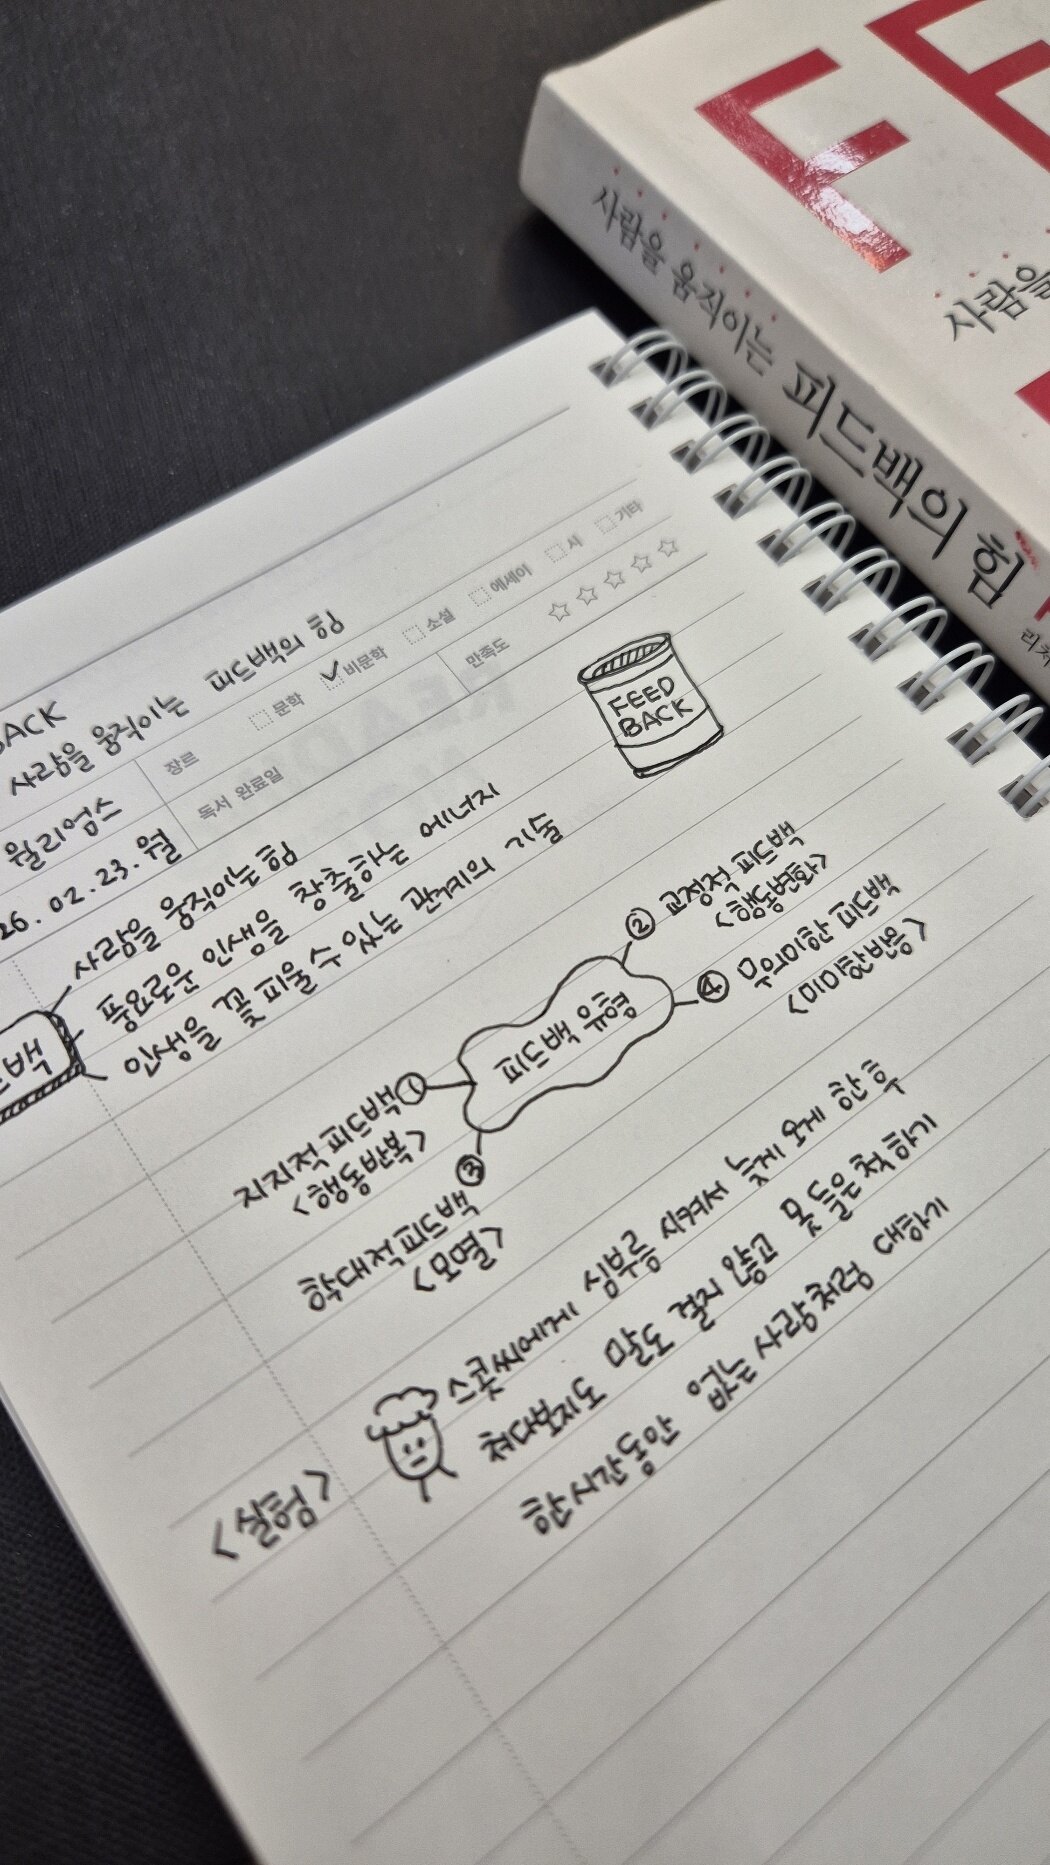 FE
사람을
사람을 움직이는 피드백의 힘
리처
BACK
사람을 움직이는 피드백의 힘
윌리엄스
장르 문학 비문학 소설 에세이 시 기타
26.02.23.월
독서 완료일
만족도
FEED
BACK
드백
사람을 움직이는 힘
풍요로운 인생을 창출하는 에너지
인생을 꽃 피울 수 있는 관계의 기술
피드백 유형
① 지지적 피드백
<행동반복>
② 교정적 피드백
<행동변화>
③ 학대적 피드백
<모멸>
④ 무의미한 피드백
<미미한반응>
<실험>
스콧씨에게 심부름 시켜서 늦게 오게 한 후
쳐다보지도 말도 걸지 않고 못 들은척 하기
한시간동안 없는 사람처럼 대하기